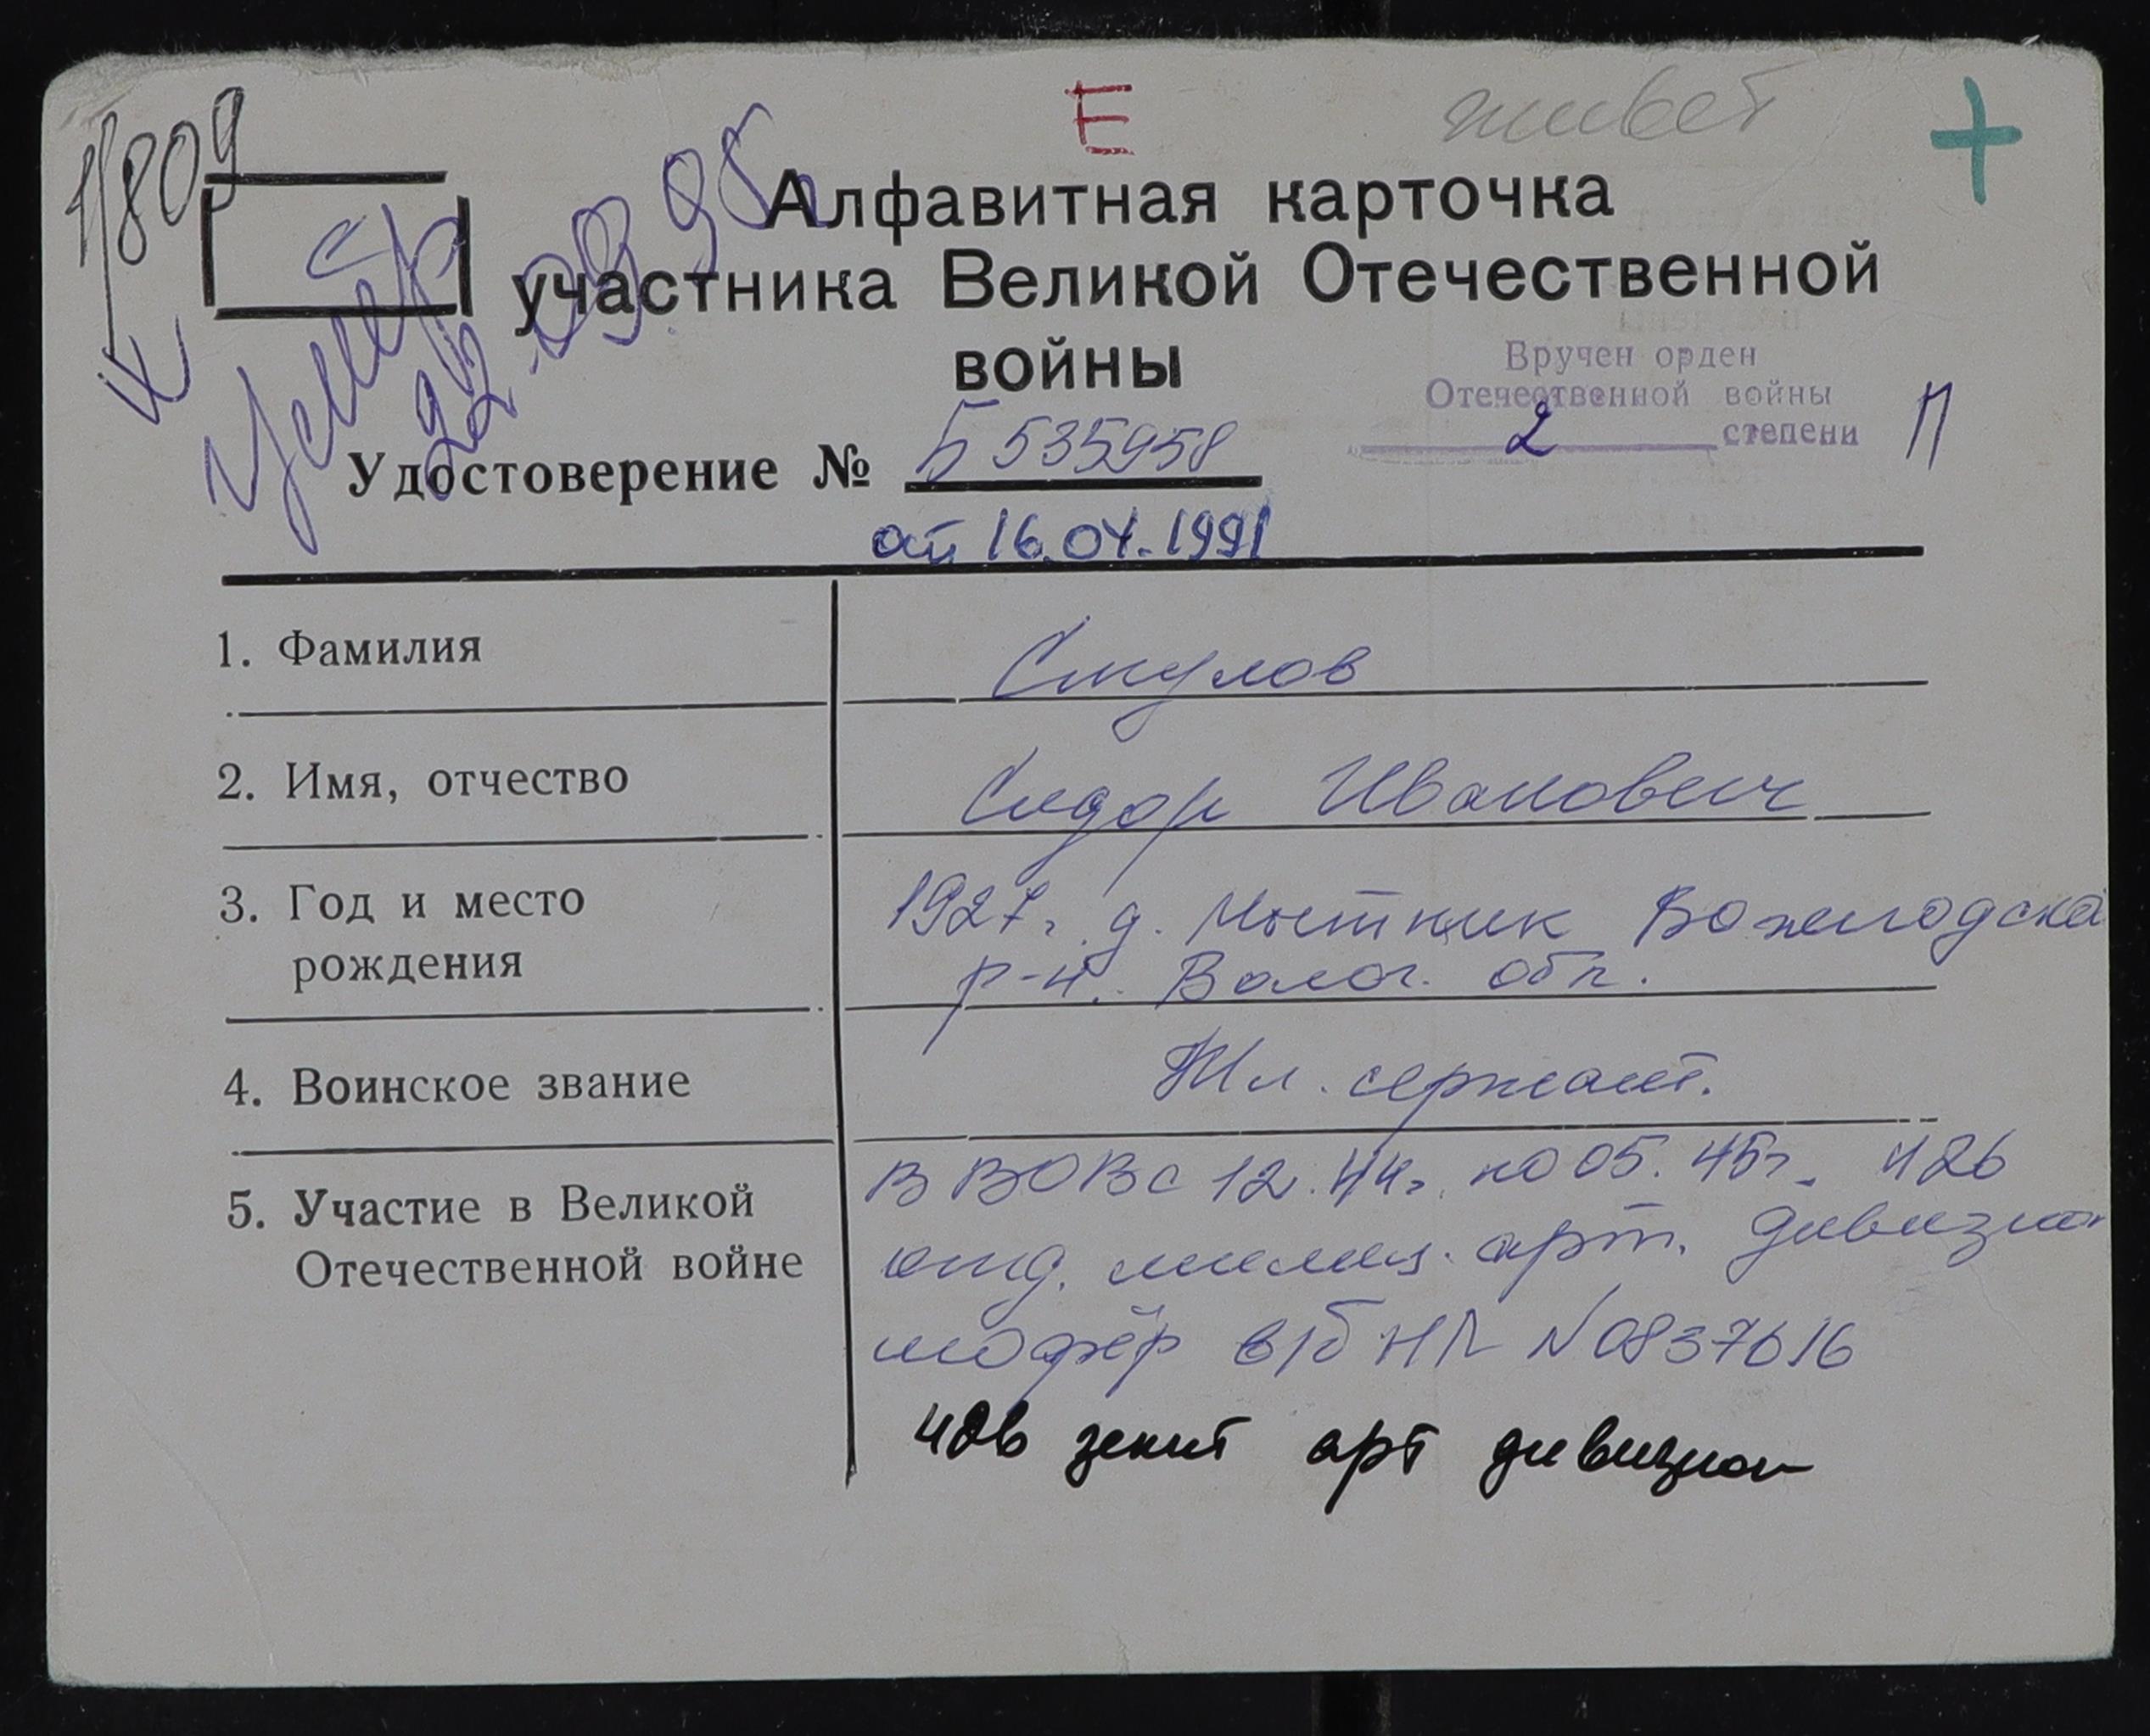 1/809
Е
живёт
+
С
Умер
22.09.95г
Алфавитная карточка
участника Великой Отечественной
войны
Вручен орден
Отечественной войны
2 степени
П
Удостоверение № Б 535958
от 16.04.1991
1. Фамилия
Смулов
2. Имя, отчество
Сидор Иванович
3. Год и место
рождения
1927г. д. Мытник Вожегодска
р-н. Волог. обл.
4. Воинское звание
Мл. сержант.
5. Участие в Великой
Отечественной войне
В ВОВ с 12.44г. по 05.45г. 426
отд. арт. дивизион
шофёр в/б НЛ N0837616
426 зенит арт дивизион